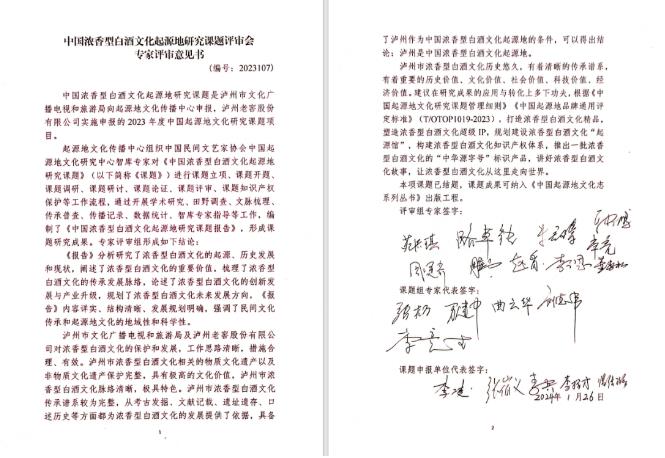 中国浓香型白酒文化起源地研究课题评审会
专家评审意见书
（编号：2023107）
中国浓香型白酒文化起源地研究课题是泸州市文化广
播电视和旅游局向起源地文化传播中心申报，泸州老窖股
份有限公司实施申报的2023年度中国起源地文化研究课题项
目。
起源地文化传播中心组织中国民间文艺家协会中国起
源地文化研究中心智库专家对《中国浓香型白酒文化起源地
研究课题》（以下简称《课题》）进行课题立项、课题开题、
课题调研、课题研讨、课题论证、课题评审、课题知识产权
保护等工作流程，通过开展学术研究、田野调查、文脉梳理、
传承普查、传播记录、数据统计、智库专家指导等工作，编
制了《中国浓香型白酒文化起源地研究课题报告》，形成课
题研究成果。专家评审组形成如下结论：
《报告》分析研究了浓香型白酒文化的起源、历史发展
和现状，阐述了浓香型白酒文化的重要价值，梳理了浓香型
白酒文化的传承发展脉络，论述了浓香型白酒文化的创新发
展与产业升级，规划了浓香型白酒文化未来发展方向。《报
告》内容详实、结构清晰、发展规划明确，强调了民间文化
传承和起源地文化的地域性和科学性。
泸州市文化广播电视和旅游局及泸州老窖股份有限公司
对浓香型白酒文化的保护和发展，工作思路清晰，措施合
理、有效。泸州市浓香型白酒文化相关的物质文化遗产以及
非物质文化遗产保护完整，具有极高的文化价值，泸州市浓
香型白酒文化脉络清晰，极具特色。泸州市浓香型白酒文化
传承谱系较为完整，从考古发掘、文献记载、遗址遗存、口
述历史等方面都为浓香型白酒文化的发展提供了依据，具备
1
了泸州作为中国浓香型白酒文化起源地的条件，可以得出结
论：泸州是中国浓香型白酒文化起源地。
泸州市浓香型白酒文化历史悠久，有着清晰的传承谱系，
有着重要的历史价值、文化价值、社会价值、科技价值、经
济价值。建议在研究成果的应用与转化上多下功夫，根据《中
国起源地文化研究课题管理细则》《中国起源地品牌通用评
定标准》（T/OTOP1019-2023），打造浓香型白酒文化精品，
塑造浓香型白酒文化超级IP，规划建设浓香型白酒文化“起
源馆”，构建浓香型白酒文化知识产权体系，推出一批浓香
型白酒文化的“中华源字号”标识产品，讲好浓香型白酒文
化故事，让浓香型白酒文化从这里走向世界。
本项课题已结题，课题成果可纳入《中国起源地文化志
系列丛书》出版工程。
评审组专家签字：
课题组专家代表签字：
曲云华
课题申报单位代表签字：
2024年1月26日
2